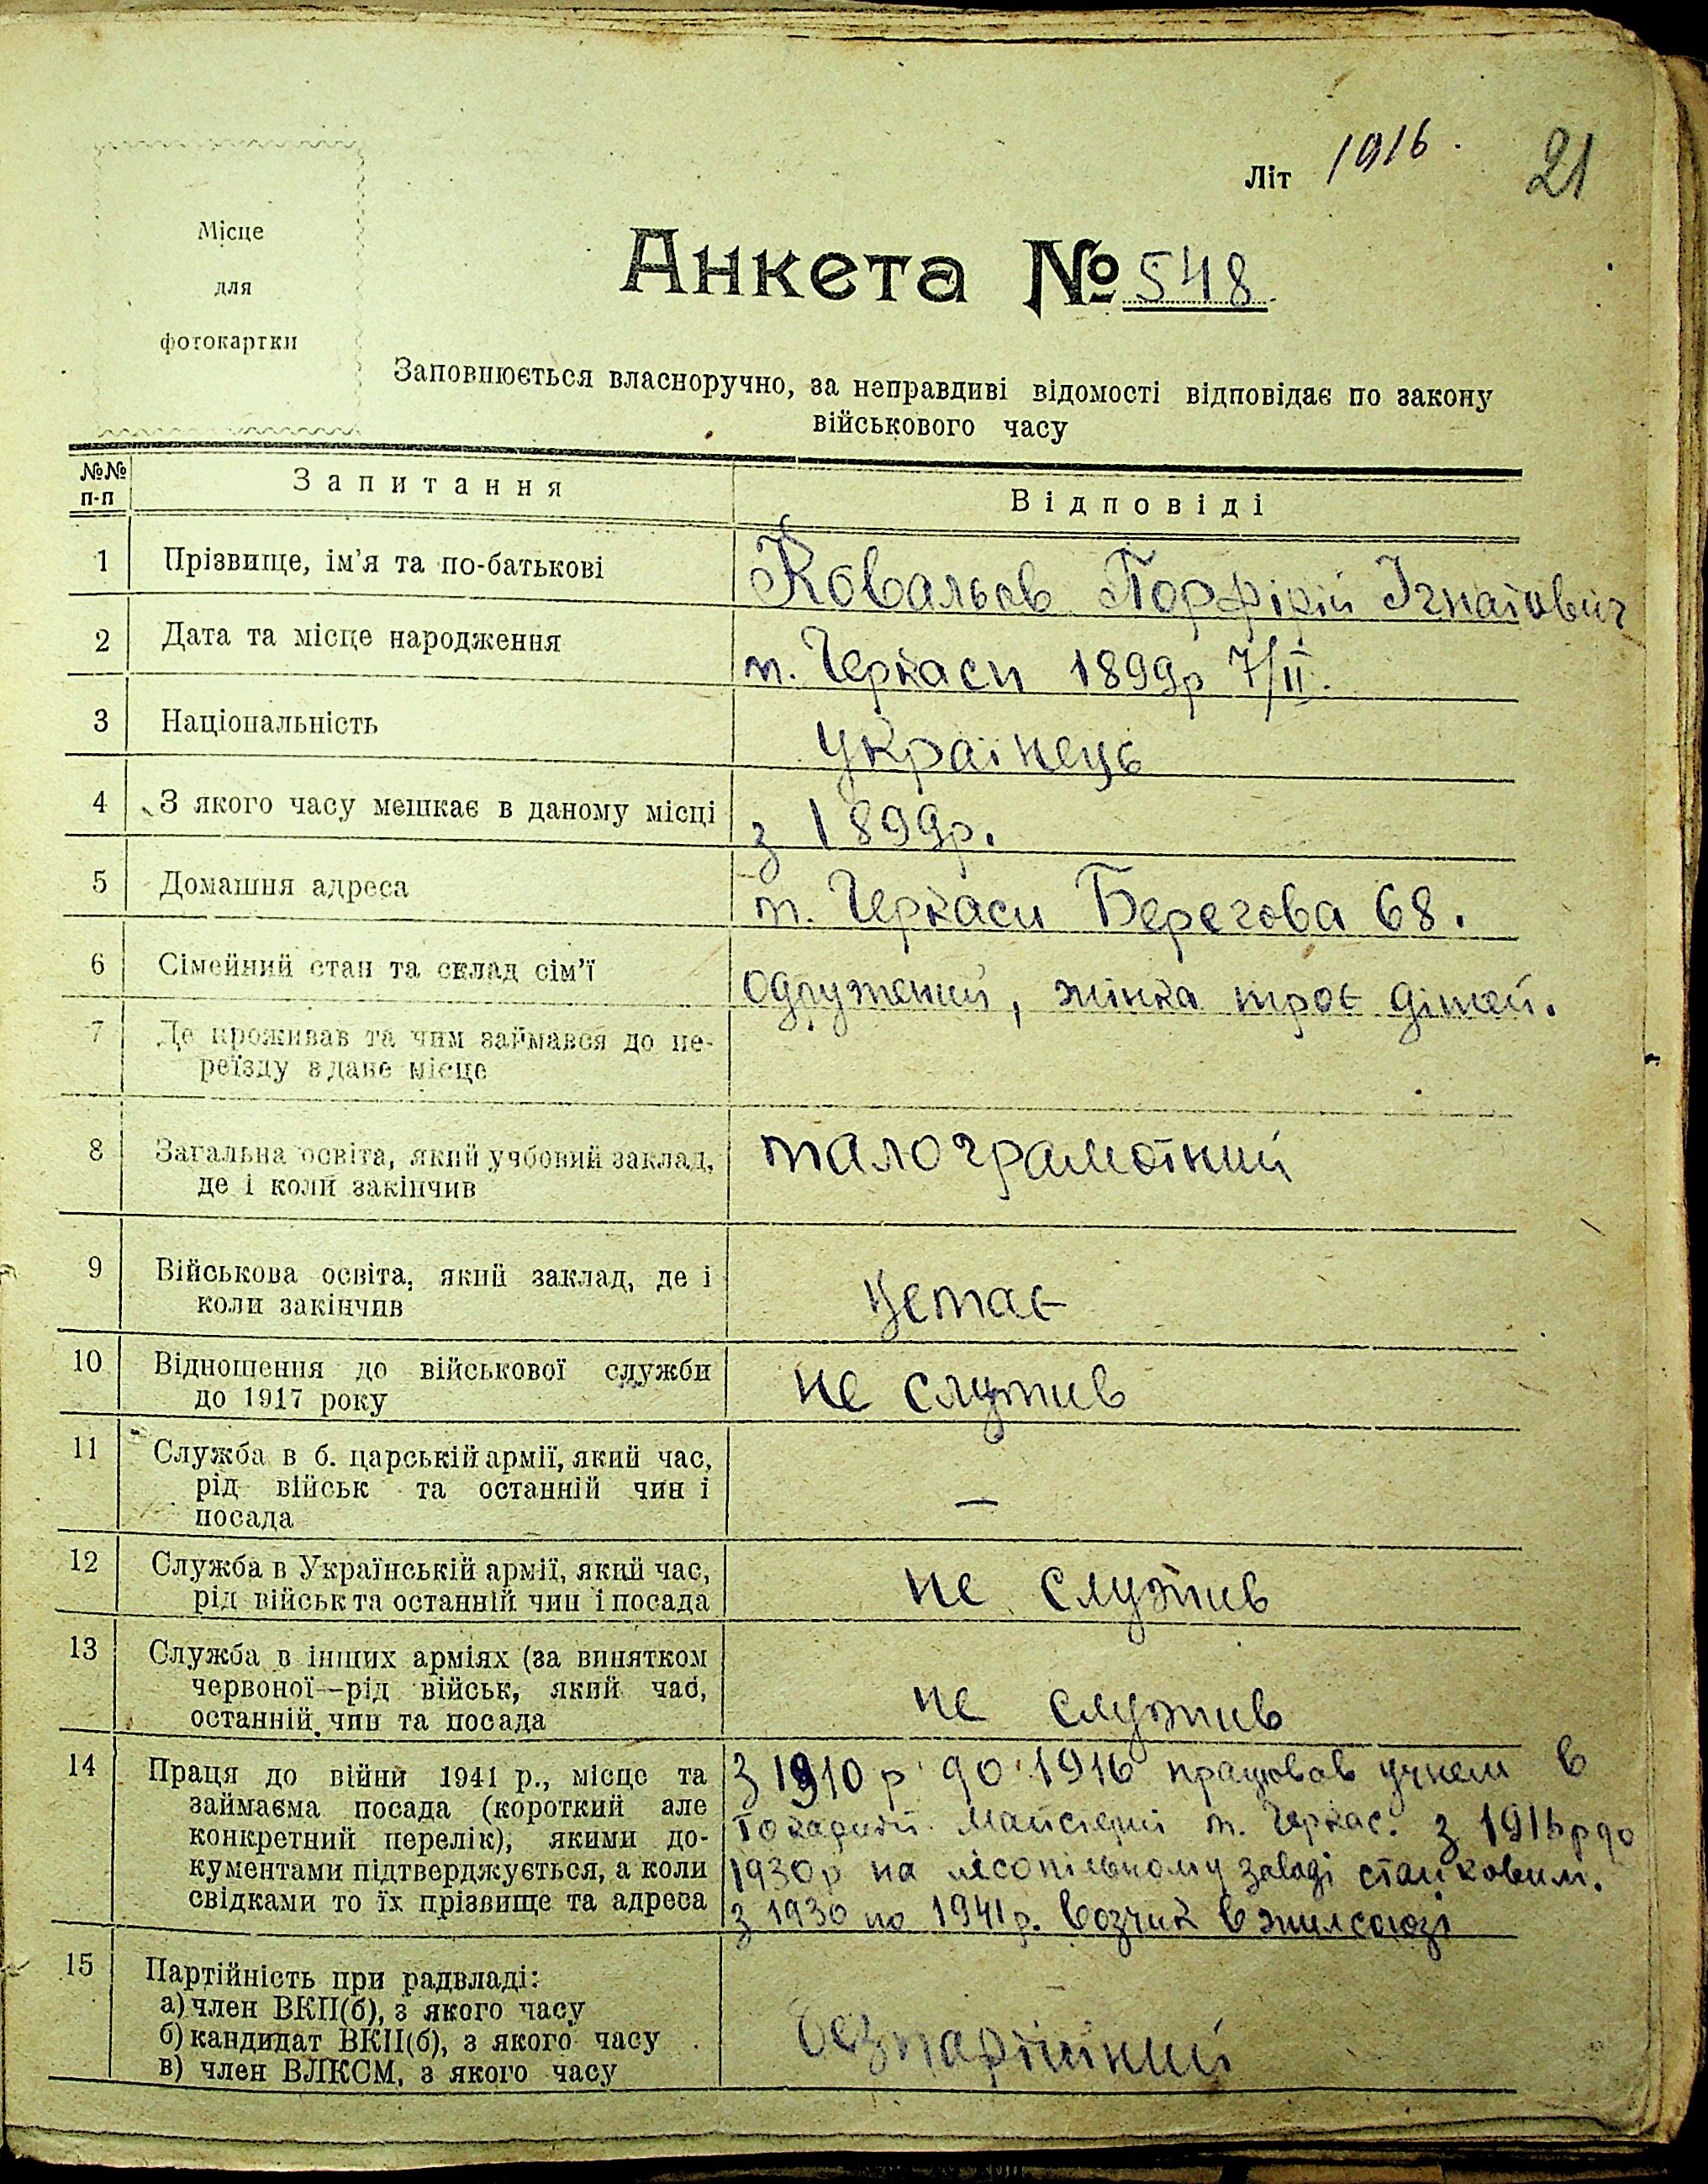 Літ 1916. 21
Місце
для
фотокартки
Анкета № 548
Заповнюється власноручно, за неправдиві відомості відповідає по закону
військового часу
№№ п-п Запитання Відповіді
1 Прізвище, ім'я та по-батькові Ковальов Порфірій Ігнатович
2 Дата та місце народження м. Черкаси 1899р 7/II.
3 Національність українець
4 З якого часу мешкає в даному місці з 1899р.
5 Домашня адреса м. Черкаси Берегова 68.
6 Сімейний стан та склад сім'ї одружений, жінка троє дітей.
7 Де проживав та чим займався до пе-
реїзду в дане місце
8 Загальна освіта, який учбовий заклад, малограмотний
де і коли закінчив
9 Військова освіта, який заклад, де і
коли закінчив немає
10 Відношення до військової служби не служив
до 1917 року
11 Служба в б. царській армії, який час,
рід військ та останній чин і —
посада
12 Служба в Українській армії, який час, не служив
рід військ та останній чин і посада
13 Служба в інших арміях (за винятком
червоної—рід військ, який час, не служив
останній чин та посада
14 Праця до війни 1941 р., місце та з 1910 р до 1916 працював учнем в
займаєма посада (короткий але майстерні м. Черкас. з 1916р до
конкретний перелік), якими до-
кументами підтверджується, а коли 1930р на лісопільному заводі станковим.
свідками то їх прізвище та адреса з 1930 по 1941р. возчик в жилсоюзі
15 Партійність при радвладі:
а) член ВКП(б), з якого часу
б) кандидат ВКП(б), з якого часу безпартійний
в) член ВЛКСМ, з якого часу